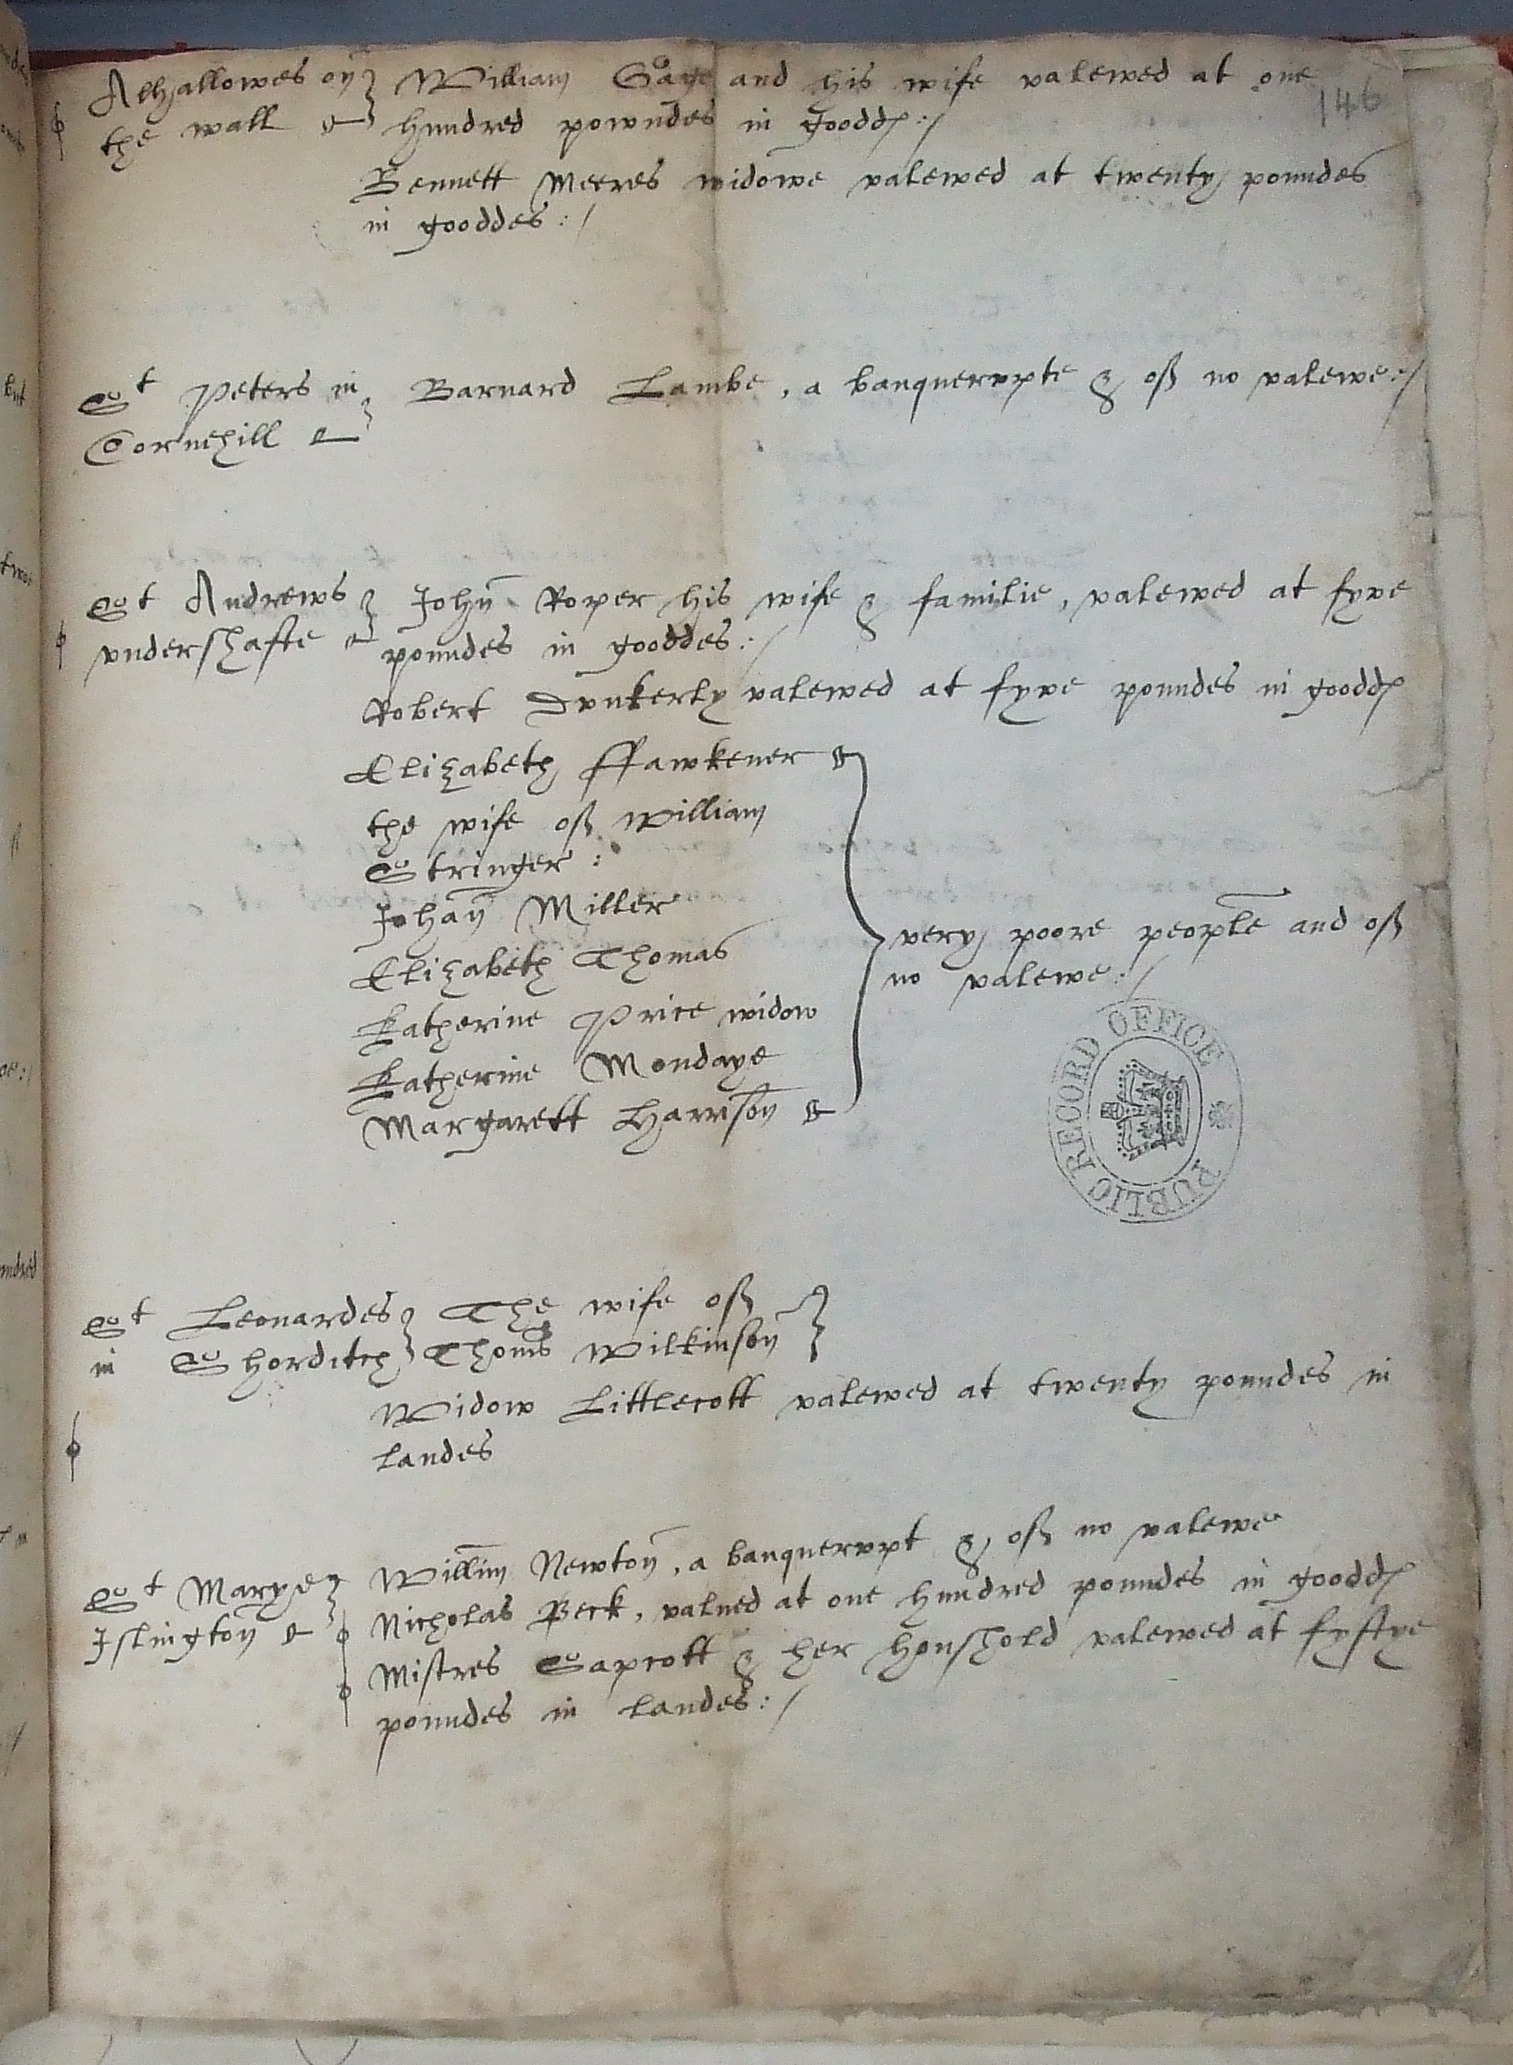 Alhallowes on William Gaye and his wife valewed at one
146
the wall hundred powndes in goodds :/
Bennett Meeres widowe valewed at twenty poundes
in gooddes :/
St Peters in Barnard Lambe, a banquerupte & of no valewe :/
Cornehill
St Andrews John Roper his wife & familie, valewed at fyve
vndershafte poundes in gooddes :/
Robert Dunkerly valewed at fyve poundes in goodds
Elizabeth ffawkener
the wife of William
Stringer :
Johan Miller
Elizabeth Thomas
very poore people and of
no valewe :/
Katherine Price widow
Katherine Mondaye
Margarett Harrison
PUBLIC RECORD OFFICE
St Leonardes The wife of
in Shorditch Thoms Wilkinson
Widow Littlecott valewed at twenty poundes in
landes
St Marye Willim Newton, a banquerupt & of no valewe
Islington Nicholas Beck, valued at one hundred poundes in goodds
Mistres Sapcott & her houshold valewed at fyftye
poundes in landes :/